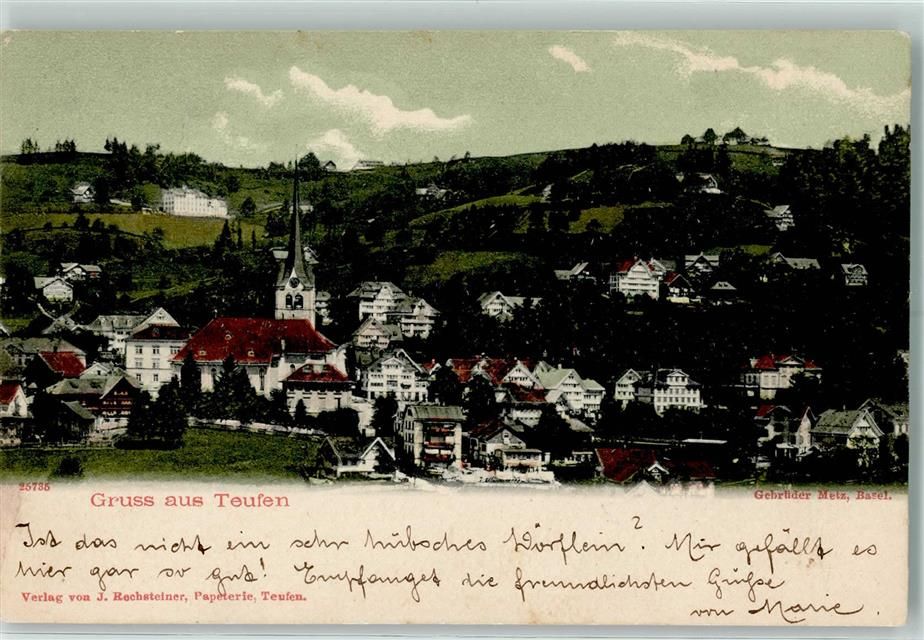 25735
Gruss aus Teufen
Gebrüder Metz, Basel.
Ist das nicht ein sehr hübsches Dörflein? Mir gefällt es
hier gar so gut! Empfanget die freundlichsten Grüße
Verlag von J. Rechsteiner, Papeterie, Teufen.
von Marie.